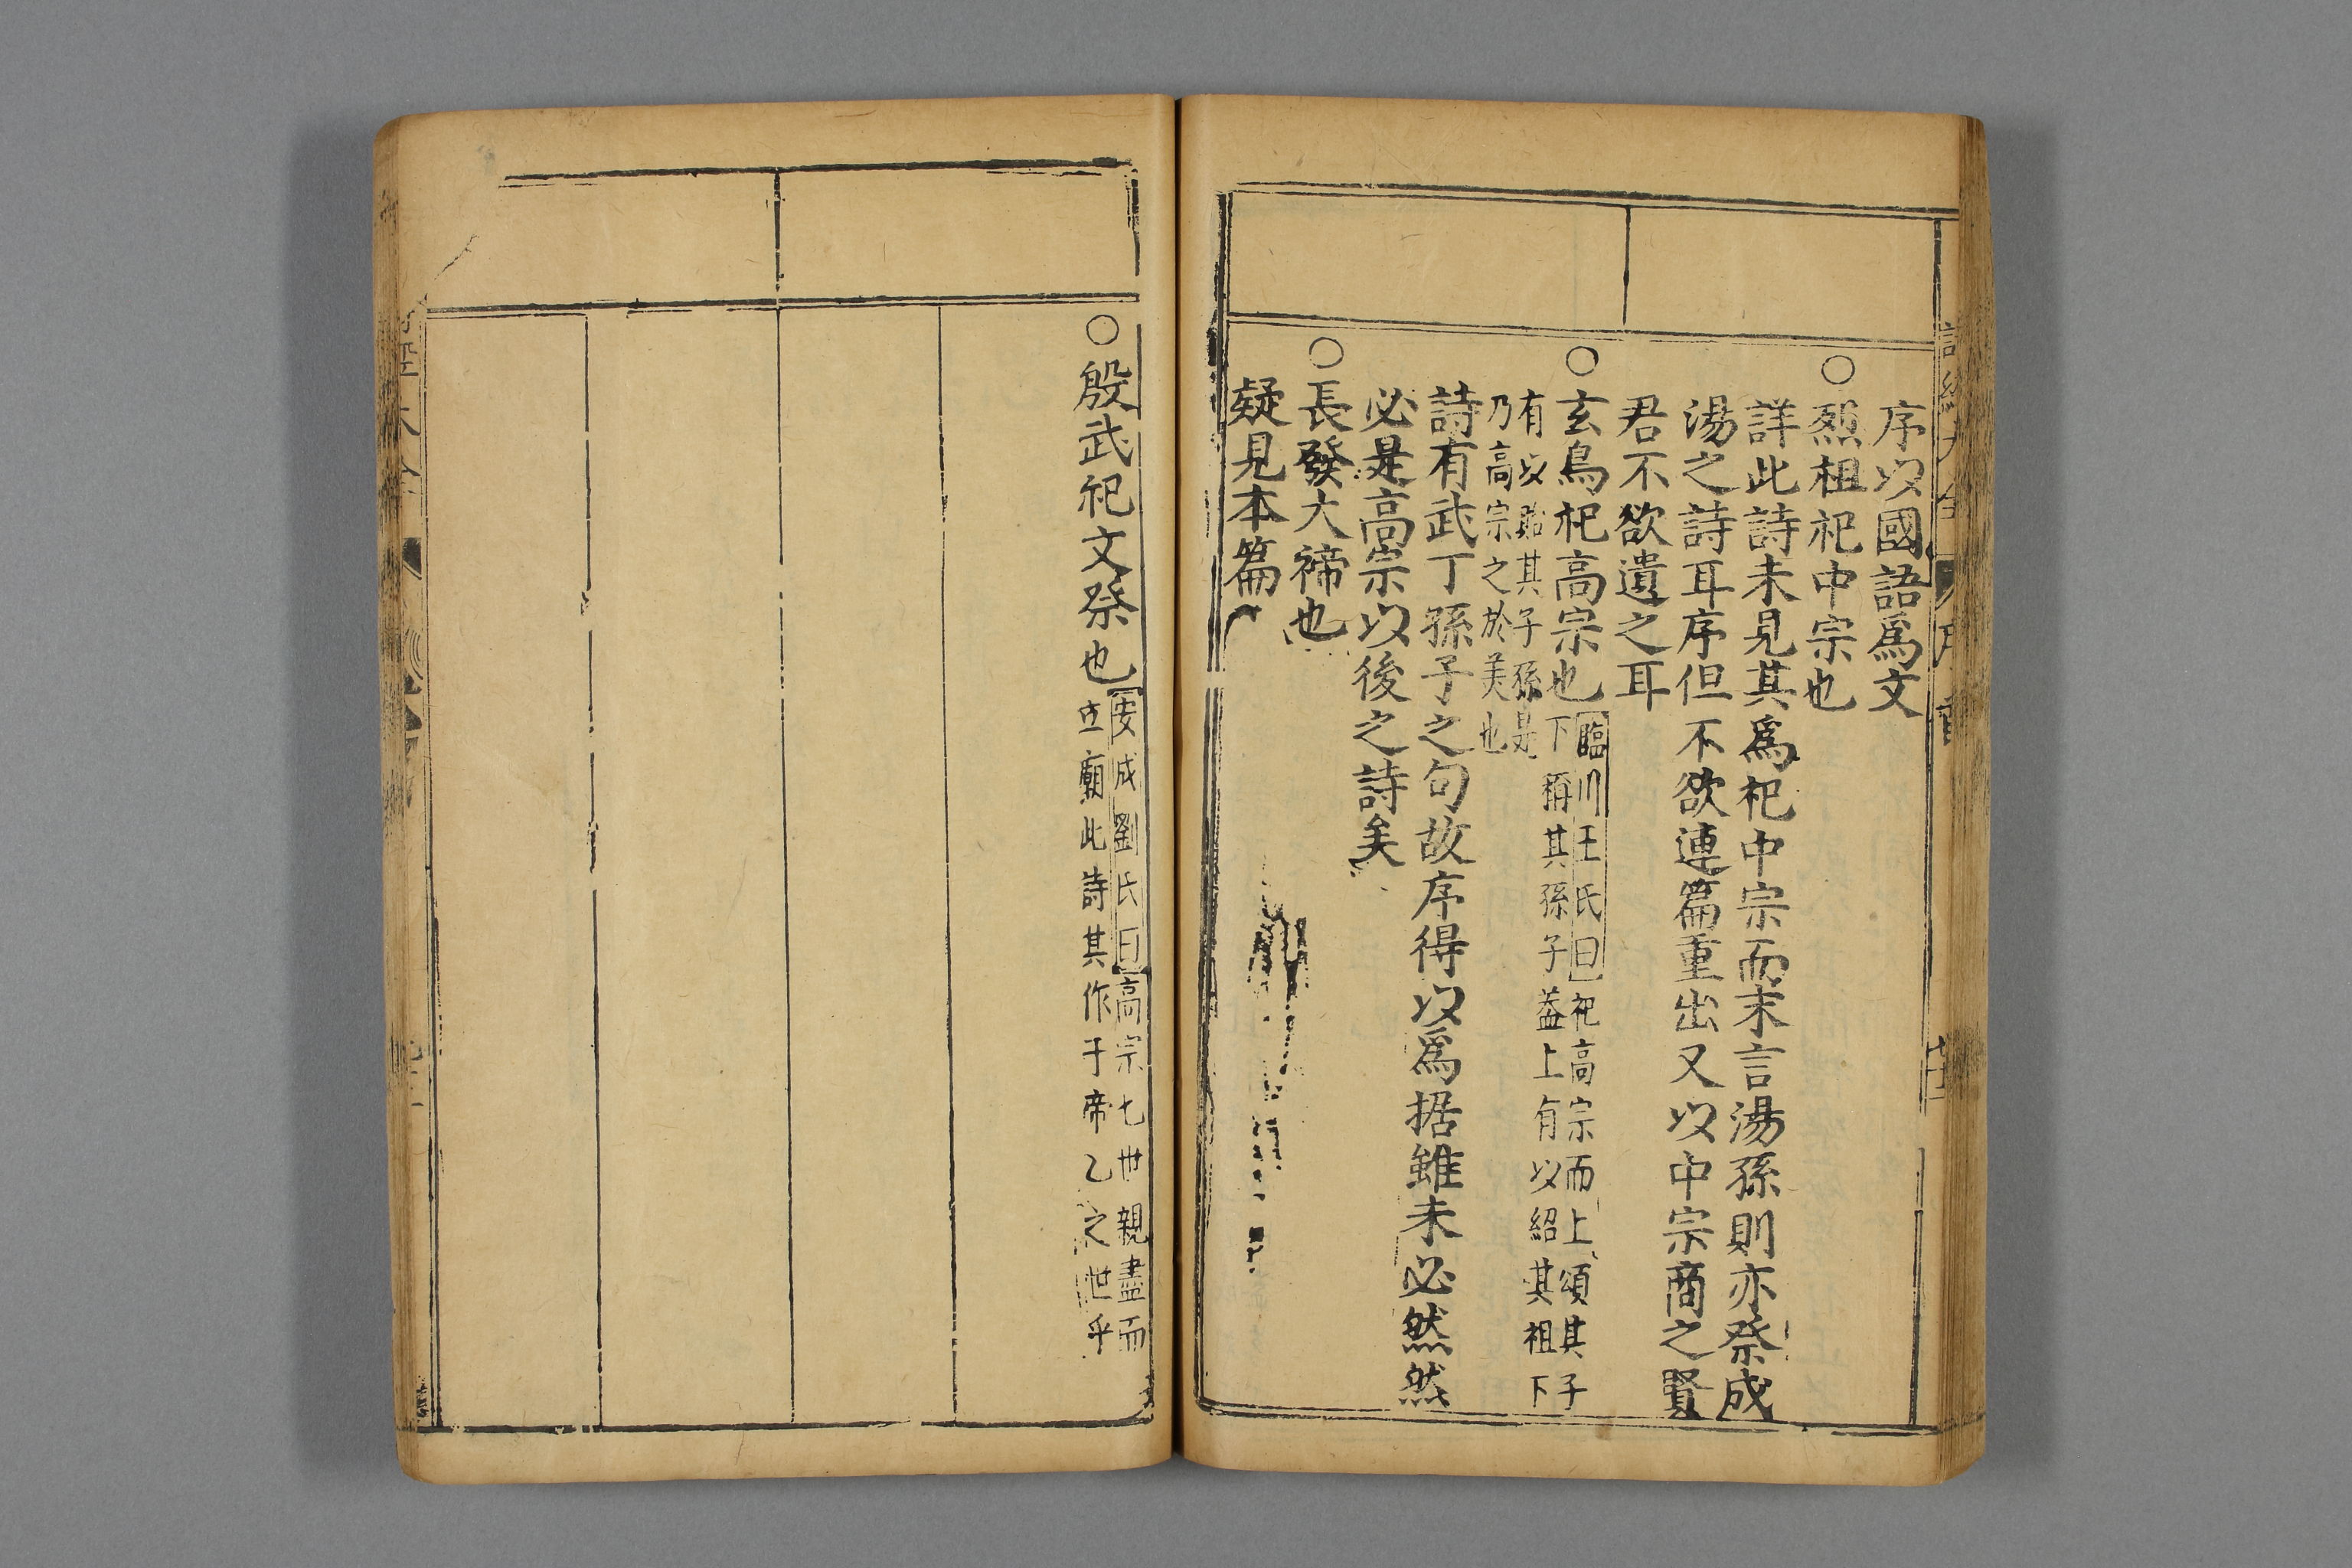 序以國語爲文
○烈祖祀中宗也
詳此詩未見其爲祀中宗而末言湯孫則亦祭成
湯之詩耳序但不欲連篇重出又以中宗商之賢
君不欲遺之耳
○玄鳥祀高宗也
臨川王氏曰祀高宗而上頌其子
下稱其孫子蓋上有以紹其祖下
有以貽其子孫是
乃高宗之於美也
詩有武丁孫子之句故序得以爲据雖未必然然
必是高宗以後之詩矣
○長發大禘也
疑見本篇
○殷武祀文祭也
安成劉氏曰高宗七世親盡而
立廟此詩其作于帝乙之世乎